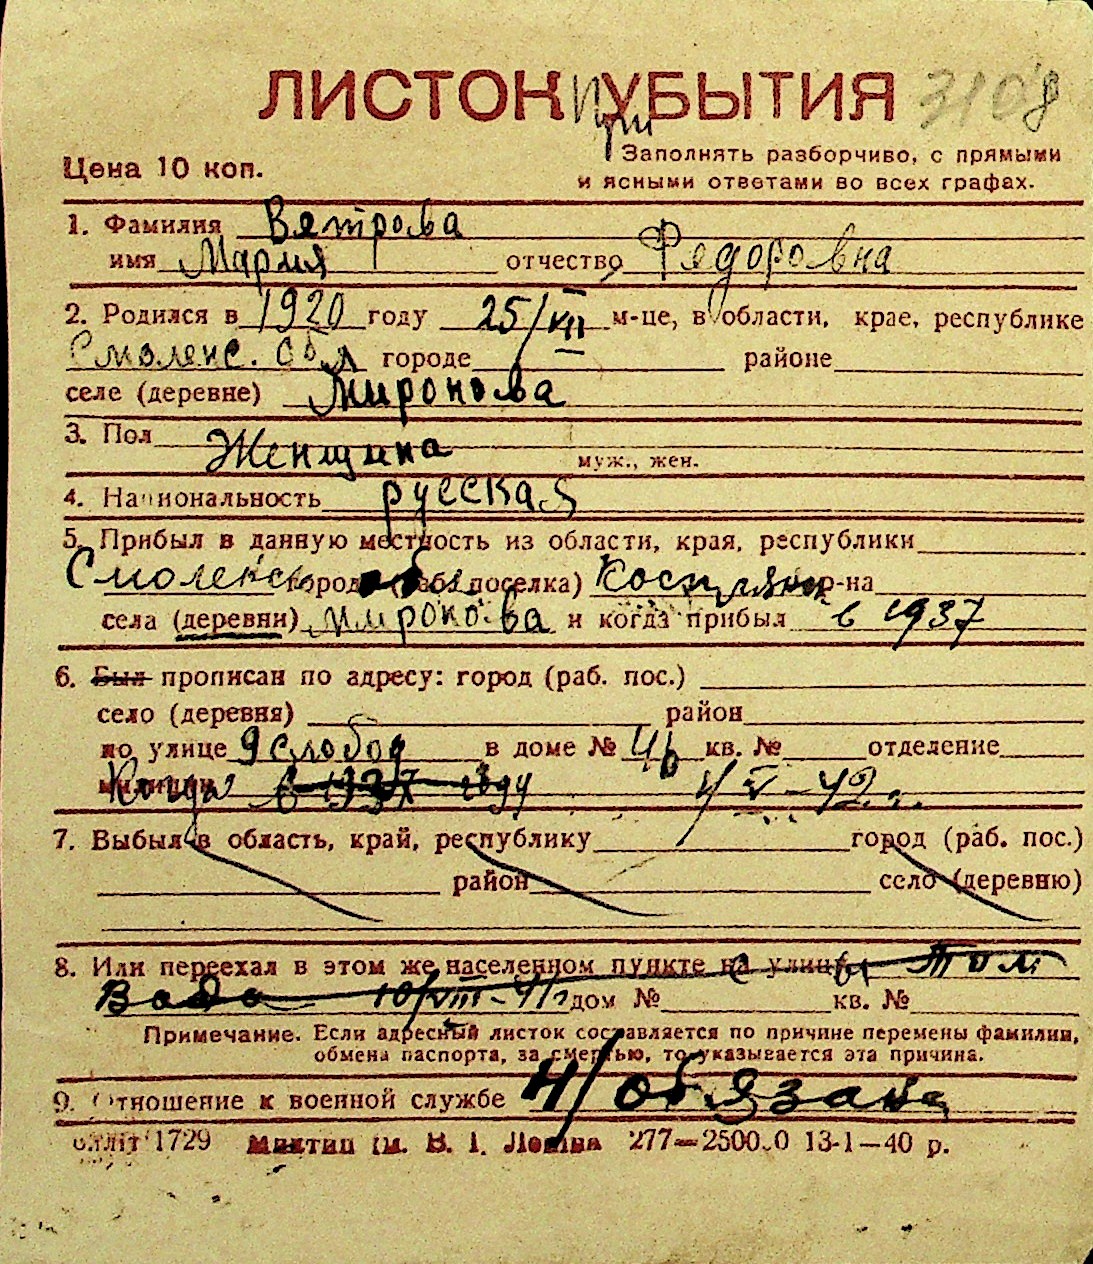 ЛИСТОК при УБЫТИЯ 310
Цена 10 коп.
Заполнять разборчиво, с прямыми
и ясными ответами во всех графах.
1. Фамилия Вятрова
имя Мария отчество Федоровна
2. Родился в 1920 году 25/VII м-це, в области, крае, республике
Смоленс. обл городе районе
селе (деревне) Миронова
3. Пол Женщина
муж., жен.
4. Национальность русская
5. Прибыл в данную местность из области, края, республики
Смоленск города (раб. поселка) р-на
села (деревни) Миронова и когда прибыл в 1937
6. Был прописан по адресу: город (раб. пос.)
село (деревня) район
по улице 9 слобод в доме № 4б кв. № отделение
милиции Когда в 1937 году 4/V-42 г.
7. Выбыл в область, край, республику город (раб. пос.)
район село (деревню)
8. Или переехал в этом же населенном пункте на улицу
10/VIII-41г дом № кв. №
Примечание. Если адресный листок составляется по причине перемены фамилии,
обмена паспорта, за смертью, то указывается эта причина.
9. Отношение к военной службе Н/обязана
1729 277—250000 13-1—40 р.